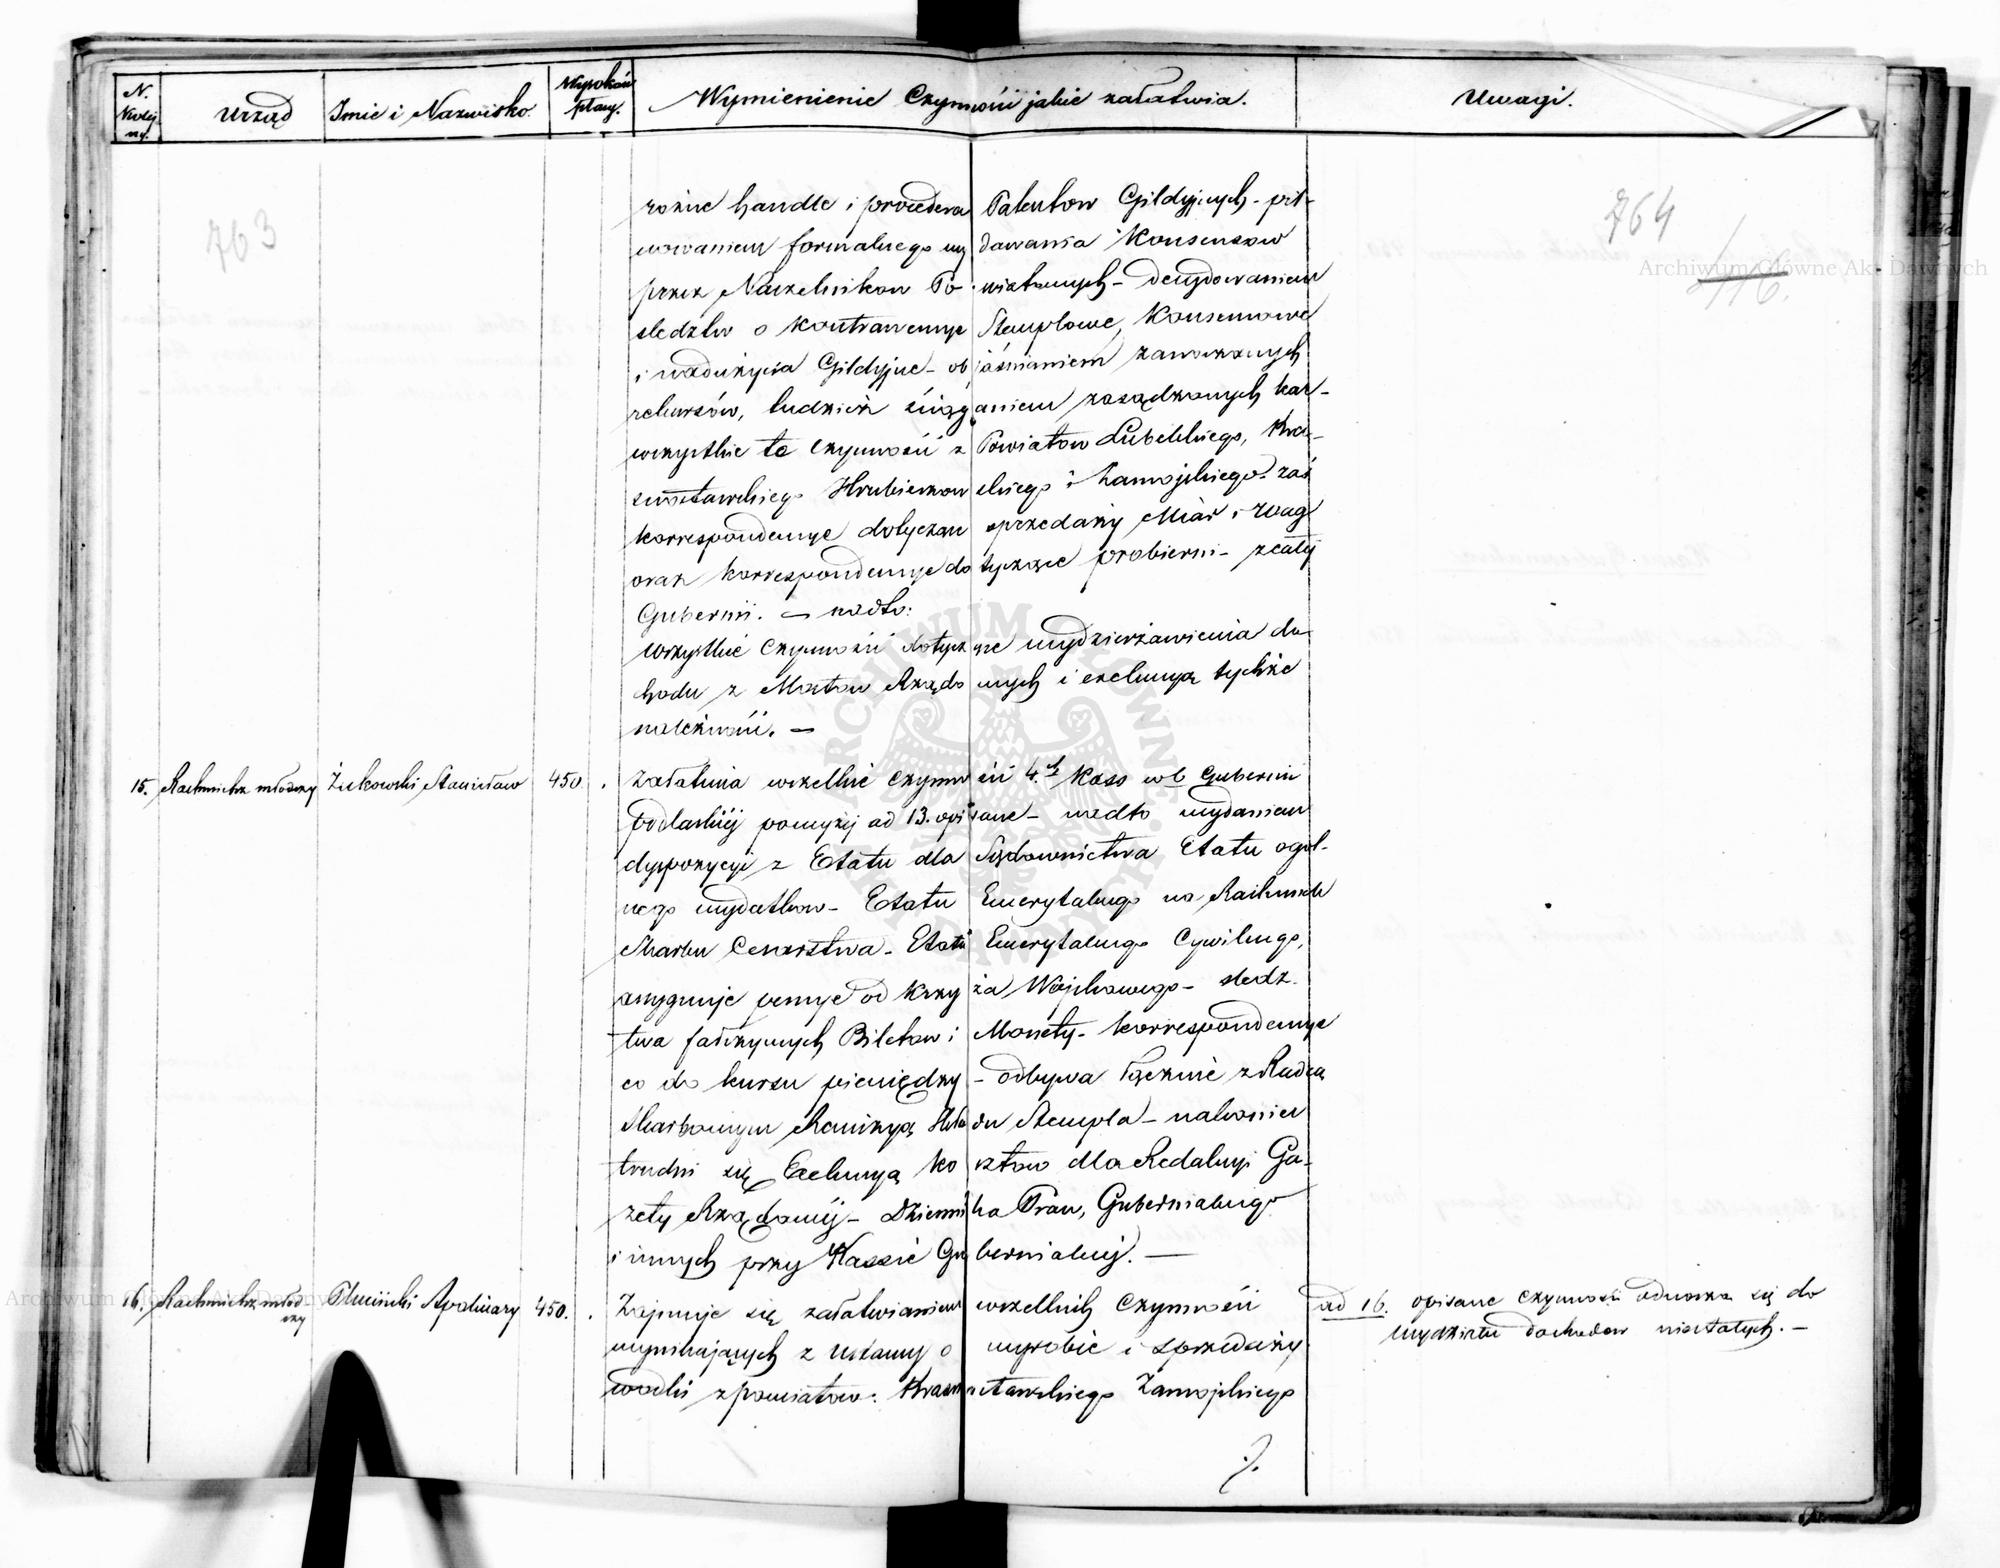 N. Kolejny.
Urząd
Imie i Nazwisko.
Wysokość płacy.
Wymienienie Czynności jakie załatwia.
Uwagi.
763
764
116.
różne handle i procedera Patentow Gildyjnych – pil-
nowaniem formalnego wydawania Konsensow
przez Naczelnikow Powiatowych – decydowaniem
sledztw o Kontrawencye Stemplowe, Konsensowe
i nadużycia Gildyjne – objaśnianiem zanoszonych
rekursów, tudzież ściąganiem zasądzonych kar –
wszystkie te czynności z Powiatow Lubelskiego, Kra-
snostawskiego Hrubieszowskiego i Zamojskiego – zaś
korrespondencye dotyczące sprzedaży Miar i Wag
oraz korrespondencye dotyczące probierni – z całej
Gubernii. – nadto:
wszystkie czynności dotyczące wydzierżawienia do-
chodu z Mostow Rządowych i exekucyą tychże
należności. –
15. Rachmistrz młodszy Żukowski Stanisław 450. Załatwia wszelkie czynności 4ch Kass w b. Gubernii
Podlaskiéj powyżéj ad 13. opisane – nadto wydaniem
dyspozycyi z Etatu dla Sądownictwa Etatu ogól-
nego wydatkow – Etatu Emerytalnego na Rachunek
Skarbu Cesarstwa – Etatu Emerytalnego Cywilnego,
assygnuje pensye od Krzyża Wojskowego – sledz-
twa fałszywych Biletow i Monety – korrespondencye
co do kursu pieniędzy – odbywa łącznie z Radcą
Skarbowym Rewizyą Składu Stempla – nakoniec
trudni się Exekucyą kosztow dla Redakcyi Ga-
zety Rządowéj – Dziennika Praw, Gubernialnego
i innych przy Kassie Gubernialnéj. –
16. Rachmistrz młodszy Apolinary 450. Zajmuje się załatwianiem wszelkich czynności
wynikających z ustawy o wyrobie i sprzedaży
wodki z powiatow: Krasnostawskiego Zamojskiego
ad 16. opisane czynności odnoszą się do
wydziału dochodow niestałych. –
Archiwum Główne Akt Dawnych
Archiwum Główne Akt Dawnych
ARCHIWUM GŁÓWNE AKT DAWNYCH